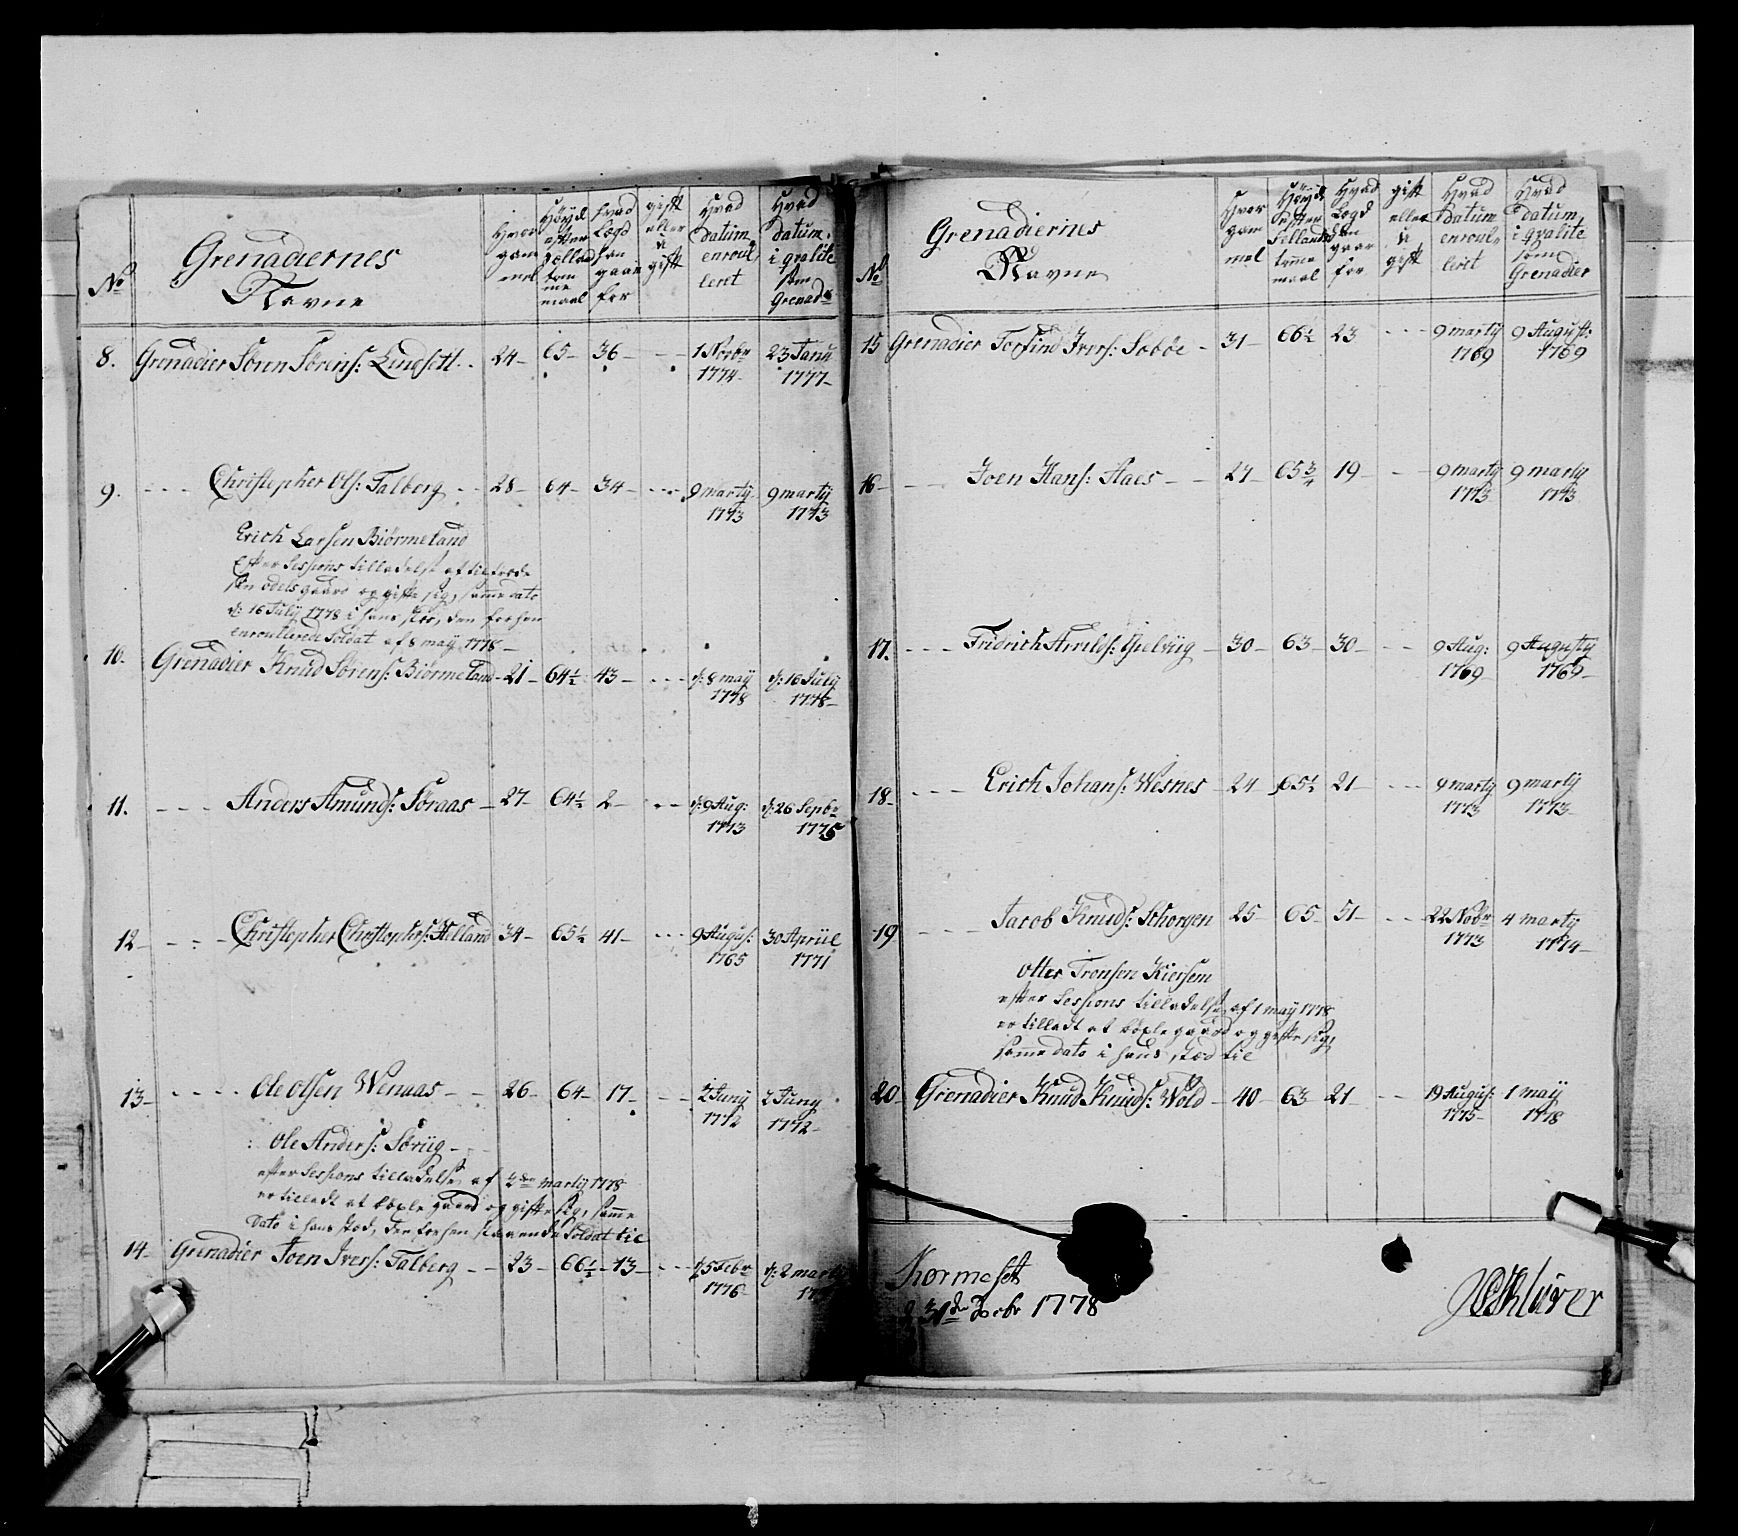 No
Grenadiernes
Navne
Hvor
gam
mel
Høyde
efter
Sællands
tom
me
maal
Hvad
Lægd
han
gaar
for
gift
eller
u
gift
Hvad
datum
enroul
leret
Hvad
datum
i qvalite
som
Grenadr
8. Grenadier Sønn Sørens: Lindsett 24 65 36 - - - 1 Novbr 1774 23 Janu 1777
9. - - - Christopher Ols: Talberg 28 64 34 - - - 9 martÿ 1773 9 martÿ 1773
Erich Larsen Biørmeland
Efter Sessions tilladelse at tiltræde
sin odels gaard og gifte sig, samme dato
d: 16 Julÿ 1778 i hans stæd, den forhen
enroullerede Soldat af 8 maÿ 1778
10. Grenadier Knud Sørens: Biørmeland 21 64½ 43 - - - d: 8 maÿ 1778 d: 16 Julÿ 1778
11. - - - Anders Amunds: Søraas 27 64½ 2 - - - d: 9 Aug: 1773 d: 26 Sepbr 1775
12 - - - Christopher Christophers: Hilland 34 65½ 41 - - - 9 Augus: 1765 30 Apriil 1771
13 - - - Ole Olsen Wenaas 26 64 17 - - - 2 Junÿ 1772 2 Junÿ 1772
Ole Anders: Søriig
efter Sessions tilladelse af 2den martÿ 1778
er tilladt at bøxle gaard og gifte sig, samme
Dato i hans stæd, den forhen staaende Soldat til
14 Grenadier Joen Ivers: Talberg 23 66½ 13 - - - d: 5 Febr 1776 d: 2 martÿ
No
Grenadiernes
Navne
Hvor
gam
mel
Høyde
efter
Sellands
tomme
maal
Hvad
Legd
han
gaar
for
gift
eller
u
gift
Hvad
datum
enroul
leret
Hvad
datum
i qvalite
som
Grenadier
15 Grenadier Torfind Ivers: Sebøe 31 66½ 23 - - - 9 martÿ 1769 9 August: 1769
16 - - - Joen Hans: Haes 27 65¾ 19 - - - 9 martÿ 1773 9 martÿ 1773
17. - - - Fridrich Arrilds: Gielviig 30 63 30 - - - 9 Aug: 1769 9 Augustÿ 1769
18 - - - Erich Johans: Wesnes 24 65½ 21 - - - 9 martÿ 1773 9 martÿ 1773
19 - - - Jacob Knuds: Schorgen 25 65 51 - - - 22 Nobr 1773 4 martÿ 1774
Otter Tronsen Kiersem
efter Sessions tilladelse af 1 maÿ 1778
er tilladt at bøxle gaard og gifte sig,
samme dato i hans stæd til
20 Grenadier Knud Knuds: Wold 40 63 21 - - - 19 Augus: 1775 1 maÿ 1778
Kormesett
d 31de Decbr 1778